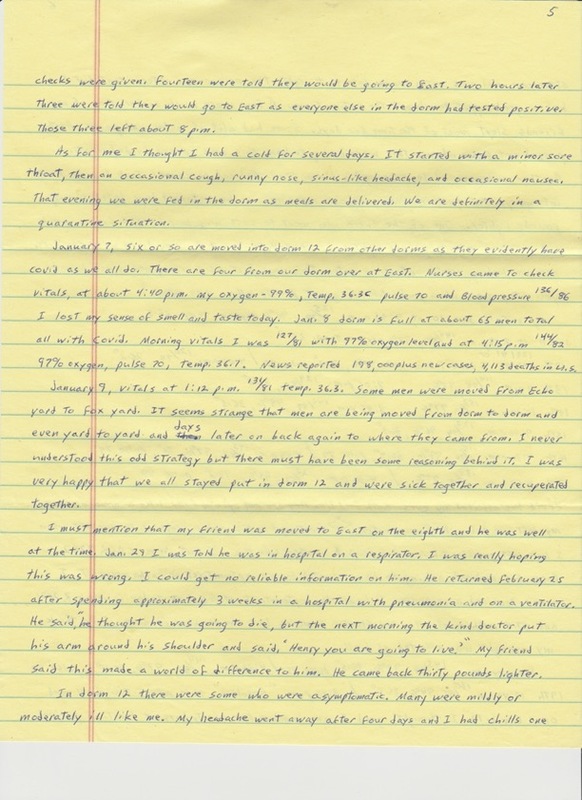 5
checks were given. Fourteen were told they would be going to East. Two hours later
three were told they would go to East as everyone else in the dorm had tested positive.
Those three left about 8 p.m.
As for me I thought I had a cold for several days. It started with a minor sore
throat, then an occasional cough, runny nose, sinus-like headache, and occasional nausea.
That evening we were fed in the dorm as meals are delivered. We are definitely in a
quarantine situation.
January 7, six or so are moved into dorm 12 from other dorms as they evidently have
covid as we all do. There are four from our dorm over at East. Nurses came to check
vitals, at about 4:40 p.m. my oxygen-99%, Temp. 36.3c pulse 70 and Blood pressure 136/86
I lost my sense of smell and taste today. Jan. 8 dorm is full at about 65 men total
all with Covid. Morning vitals I was 127/81 with 97% oxygen level and at 4:15 p.m 144/82
97% oxygen, pulse 70, Temp. 36.7. News reported 198,000 plus new cases, 4,113 deaths in U.S.
January 9, vitals at 1:12 p.m. 131/81 temp. 36.3. Some men were moved from Echo
yard to Fox yard. It seems strange that men are being moved from dorm to dorm and
even yard to yard and days later on back again to where they came from. I never
understood this odd strategy but there must have been some reasoning behind it. I was
very happy that we all stayed put in dorm 12 and were sick together and recuperated
together.
I must mention that my friend was moved to East on the eighth and he was well
at the time. Jan. 29 I was told he was in hospital on a respirator. I was really hoping
this was wrong. I could get no reliable information on him. He returned February 25
after spending approximately 3 weeks in a hospital with pneumonia and on a ventilator.
He said, "he thought he was going to die, but the next morning the kind doctor put
his arm around his shoulder and said, 'Henry you are going to live.'" My friend
said this made a world of difference to him. He came back thirty pounds lighter.
In dorm 12 there were some who were asymptomatic. Many were mildly or
moderately ill like me. My headache went away after four days and I had chills one